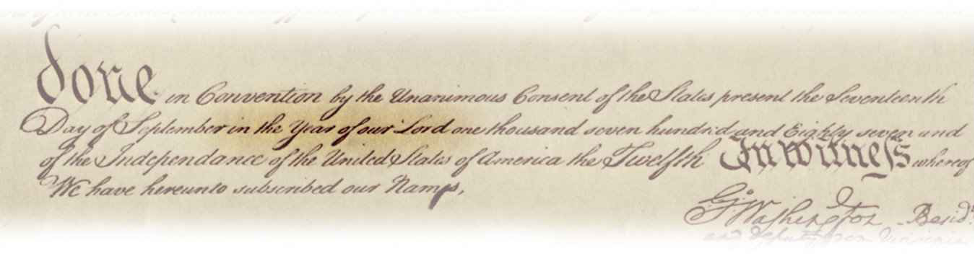 done in Convention by the Unanimous Consent of the States present the Seventeenth
Day of September in the Year of our Lord one thousand seven hundred and Eighty seven and
of the Independance of the United States of America the Twelfth In Witness whereof
We have hereunto subscribed our Names,
Go Washington Presidt
and deputy from Virginia